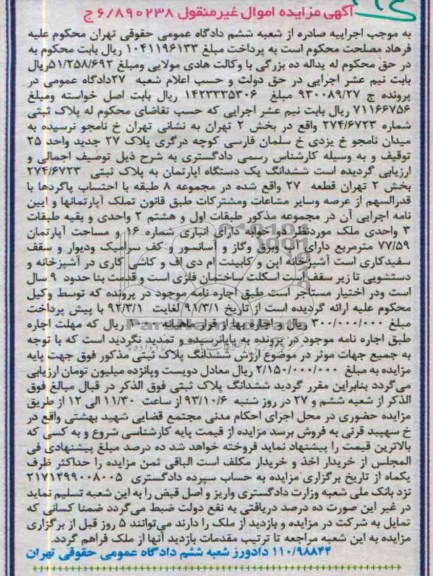 آگهی مزایده اموال غیرمنقول ۶/۸۹۰۲۳۸ ج
به موجب اجراییه صادره از شعبه ششم دادگاه عمومی حقوقی تهران محکوم علیه
فرهاد مصلحت محکوم است به پرداخت مبلغ ۱۰۴۱۱۹۶۱۳۳ ریال بابت محکوم به
در حق محکوم له یداله ده بزرگی با وکالت هادی مولایی ومبلغ ۵۱/۲۵۸/۶۹۲ریال
بابت نیم عشر اجرایی در حق دولت و حسب اعلام شعبه ۲۷دادگاه عمومی در
پرونده ج ۹۳۰۰۸۹/۲۷ مبلغ ۱۴۲۳۳۳۵۳۰۶ ریال بابت اصل خواسته ومبلغ
۷۱۱۶۶۷۵۶ ریال بابت نیم عشر اجرایی که حسب تقاضای محکوم له پلاک ثبتی
شماره ۲۷۴/۶۷۲۳ واقع در بخش ۲ تهران به نشانی تهران خ نامجو نرسیده به
میدان نامجو خ یزدی خ سلمان فارسی کوچه درگری پلاک ۲۷ جدید واحد ۲۵
توقیف و به وسیله کارشناس رسمی دادگستری به شرح ذیل توصیف اجمالی و
ارزیابی گردیده است ششدانگ یک دستگاه آپارتمان به پلاک ثبتی ۲۷۴/۶۷۲۳
بخش ۲ تهران قطعه ۲۷ واقع شده در مجموعه ۸ طبقه با احتساب پاگردها با
قدرالسهم از عرصه وسایر مشاعات ومشترکات طبق قانون تملک آپارتمانها و آیین
نامه اجرایی آن در مجموعه مذکور طبقات اول و هشتم ۲ واحدی و بقیه طبقات
۴ واحدی ملک موردنظر فوق دارای انباری شماره ۱۶ و مساحت آپارتمان
۷۷/۵۹ مترمربع دارای آب وبرق وگاز و آسانسور و کف سرامیک ودیوار و سقف
سفیدکاری است آشپزخانه اپن و کابینت ام دی اف و کاشی کاری در آشپزخانه و
دستشویی تا زیر سقف است اسکلت ساختمان فلزی است و قدمت بنا حدود ۹ سال
است ودر اختیار مستأجر است طبق اجاره نامه موجود در پرونده که توسط وکیل
محکوم علیه ارائه گردیده است از تاریخ ۹۱/۳/۱ لغایت ۹۲/۳/۱ با پیش پرداخت
مبلغ ۳۰۰/۰۰۰/۰۰۰ ریال و اجاره بها از قرار ماهیانه ریال که مهلت اجاره
طبق اجاره نامه موجود در پرونده به پایان رسیده و تمدید نگردیده است که با توجه
به جمیع جهات موثر در موضوع ارزش ششدانگ پلاک ثبتی مذکور فوق جهت پایه
مزایده به مبلغ ۲/۱۵۰/۰۰۰/۰۰۰ ریال معادل دویست وپانزده میلیون تومان ارزیابی
می‌گردد بنابراین مقرر گردید ششدانگ پلاک ثبتی فوق الذکر در قبال مبالغ فوق
الذکر از شعبه ششم و ۲۷ در روز شنبه ۹۳/۱۰/۶ از ساعت ۱۱/۳۰ الی ۱۲ از طریق
مزایده حضوری در محل اجرای احکام مدنی مجتمع قضایی شهید بهشتی واقع در
خ سپهبد قرنی به فروش برسد مزایده از قیمت پایه کارشناسی شروع و به کسی که
بالاترین قیمت را پیشنهاد نماید فروخته خواهد شد ده درصد مبلغ پیشنهادی فی
المجلس از خریدار اخذ و خریدار مکلف است الباقی ثمن مزایده را حداکثر ظرف
یکماه از تاریخ برگزاری مزایده به حساب سپرده دادگستری ۲۱۷۱۲۹۹۰۰۸۰۰۵
نزد بانک ملی شعبه وزارت دادگستری واریز و اصل قبض را به این شعبه تسلیم نماید
در غیر این صورت ده درصد دریافتی به نفع دولت ضبط می‌گردد ضمنا کسانی که
تمایل به شرکت در مزایده و بازدید از ملک را دارند می‌توانند ۵ روز قبل از برگزاری
مزایده به این شعبه مراجعه تا ترتیب مقدمات بازدید آنها از ملک فراهم گردد.
۱۱۰/۹۸۸۴۳ دادورز شعبه ششم دادگاه عمومی حقوقی تهران